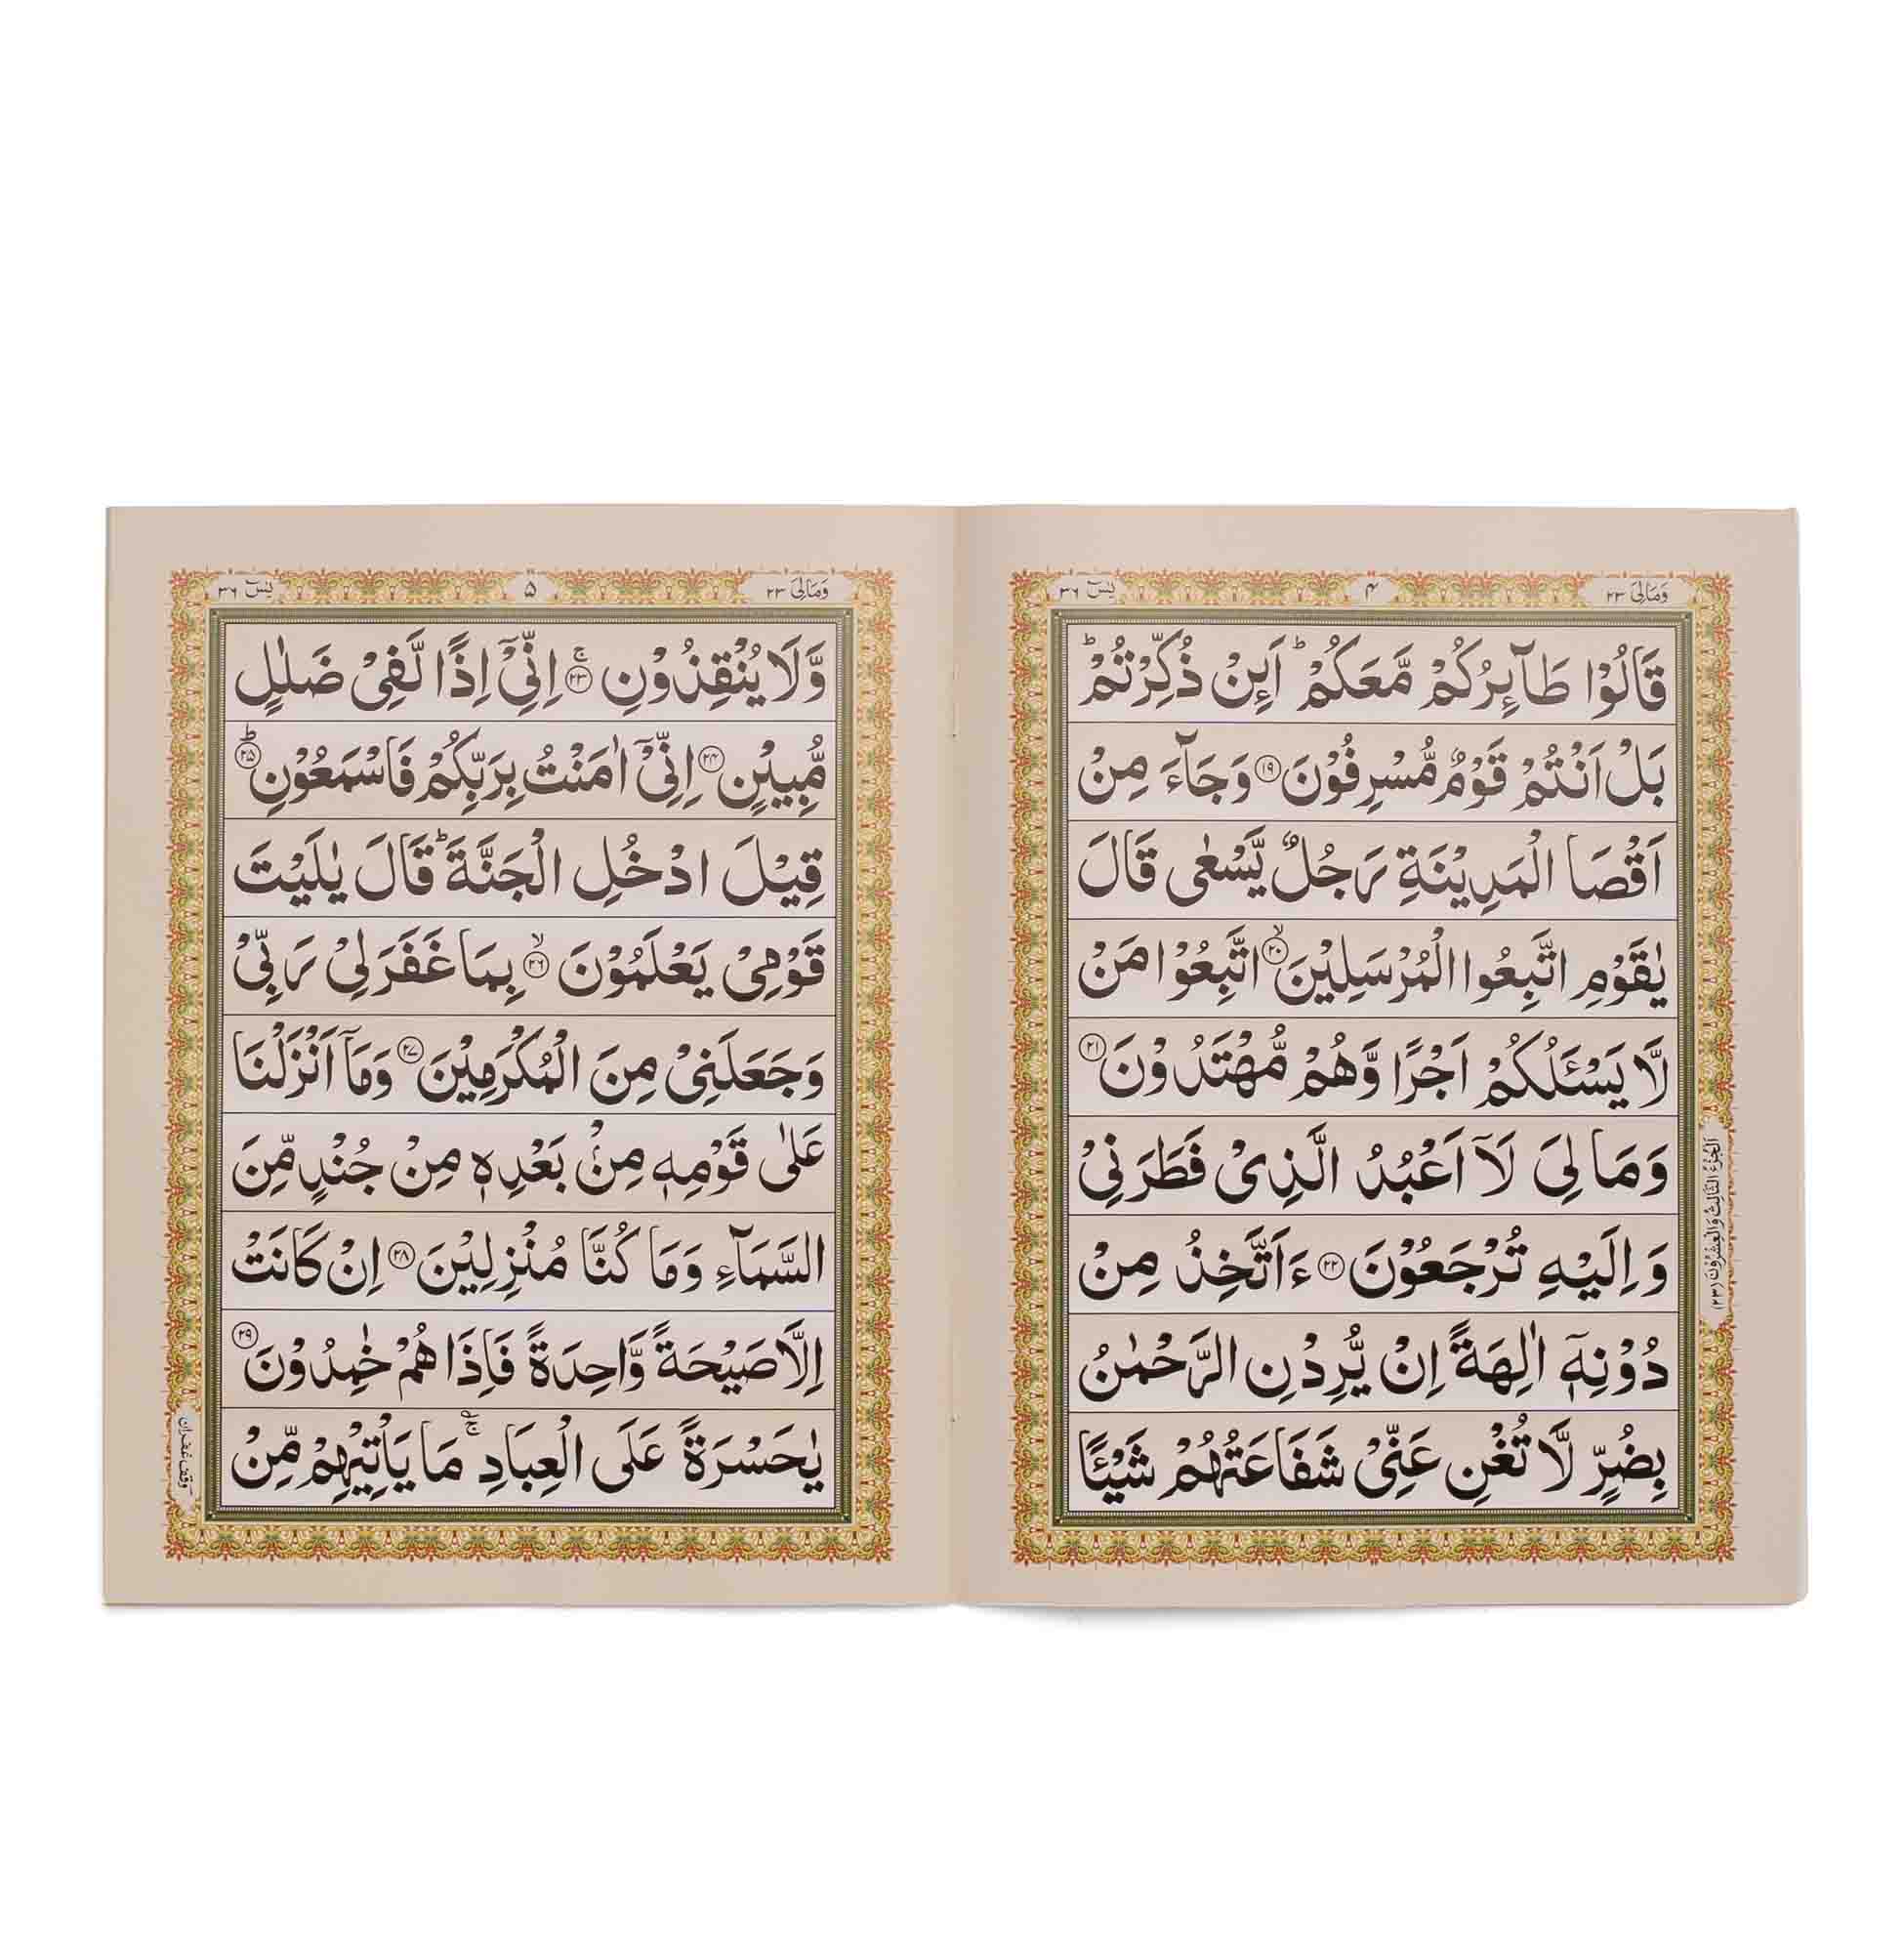 وَمَالِیَ ٢٣
۴
يٰسٓ ٣٦
قَالُوْا طَآئِرُكُمْ مَّعَكُمْ ؕ اَئِنْ ذُكِّرْتُمْ ؕ
بَلْ اَنْتُمْ قَوْمٌ مُّسْرِفُوْنَ ۝۱۹ وَجَآءَ مِنْ
اَقْصَا الْمَدِيْنَةِ رَجُلٌ يَّسْعٰى قَالَ
يٰقَوْمِ اتَّبِعُوا الْمُرْسَلِيْنَ ۝۲۰ۙ اتَّبِعُوْا مَنْ
لَّا يَسْئَلُكُمْ اَجْرًا وَّهُمْ مُّهْتَدُوْنَ ۝۲۱
وَمَا لِىَ لَآ اَعْبُدُ الَّذِىْ فَطَرَنِىْ
وَاِلَيْهِ تُرْجَعُوْنَ ۝۲۲ ءَاَتَّخِذُ مِنْ
دُوْنِهٖٓ اٰلِهَةً اِنْ يُّرِدْنِ الرَّحْمٰنُ
بِضُرٍّ لَّا تُغْنِ عَنِّىْ شَفَاعَتُهُمْ شَيْئًا
الجُزءُ الثَّالِثُ وَالعِشْرُوْنَ (٢٣)
وَمَالِیَ ٢٣
۵
يٰسٓ ٣٦
وَّلَا يُنْقِذُوْنِ ۝۲۳ۚ اِنِّىْٓ اِذًا لَّفِىْ ضَلٰلٍ
مُّبِيْنٍ ۝۲۴ اِنِّىْٓ اٰمَنْتُ بِرَبِّكُمْ فَاسْمَعُوْنِ ۝۲۵ؕ
قِيْلَ ادْخُلِ الْجَنَّةَ ؕ قَالَ يٰلَيْتَ
قَوْمِىْ يَعْلَمُوْنَ ۝۲۶ۙ بِمَا غَفَرَ لِىْ رَبِّىْ
وَجَعَلَنِىْ مِنَ الْمُكْرَمِيْنَ ۝۲۷ وَمَآ اَنْزَلْنَا
عَلٰى قَوْمِهٖ مِنْۢ بَعْدِهٖ مِنْ جُنْدٍ مِّنَ
السَّمَآءِ وَمَا كُنَّا مُنْزِلِيْنَ ۝۲۸ اِنْ كَانَتْ
اِلَّا صَيْحَةً وَّاحِدَةً فَاِذَا هُمْ خٰمِدُوْنَ ۝۲۹
يٰحَسْرَةً عَلَى الْعِبَادِ ۚ مَا يَاْتِيْهِمْ مِّنْ
وقف غفران